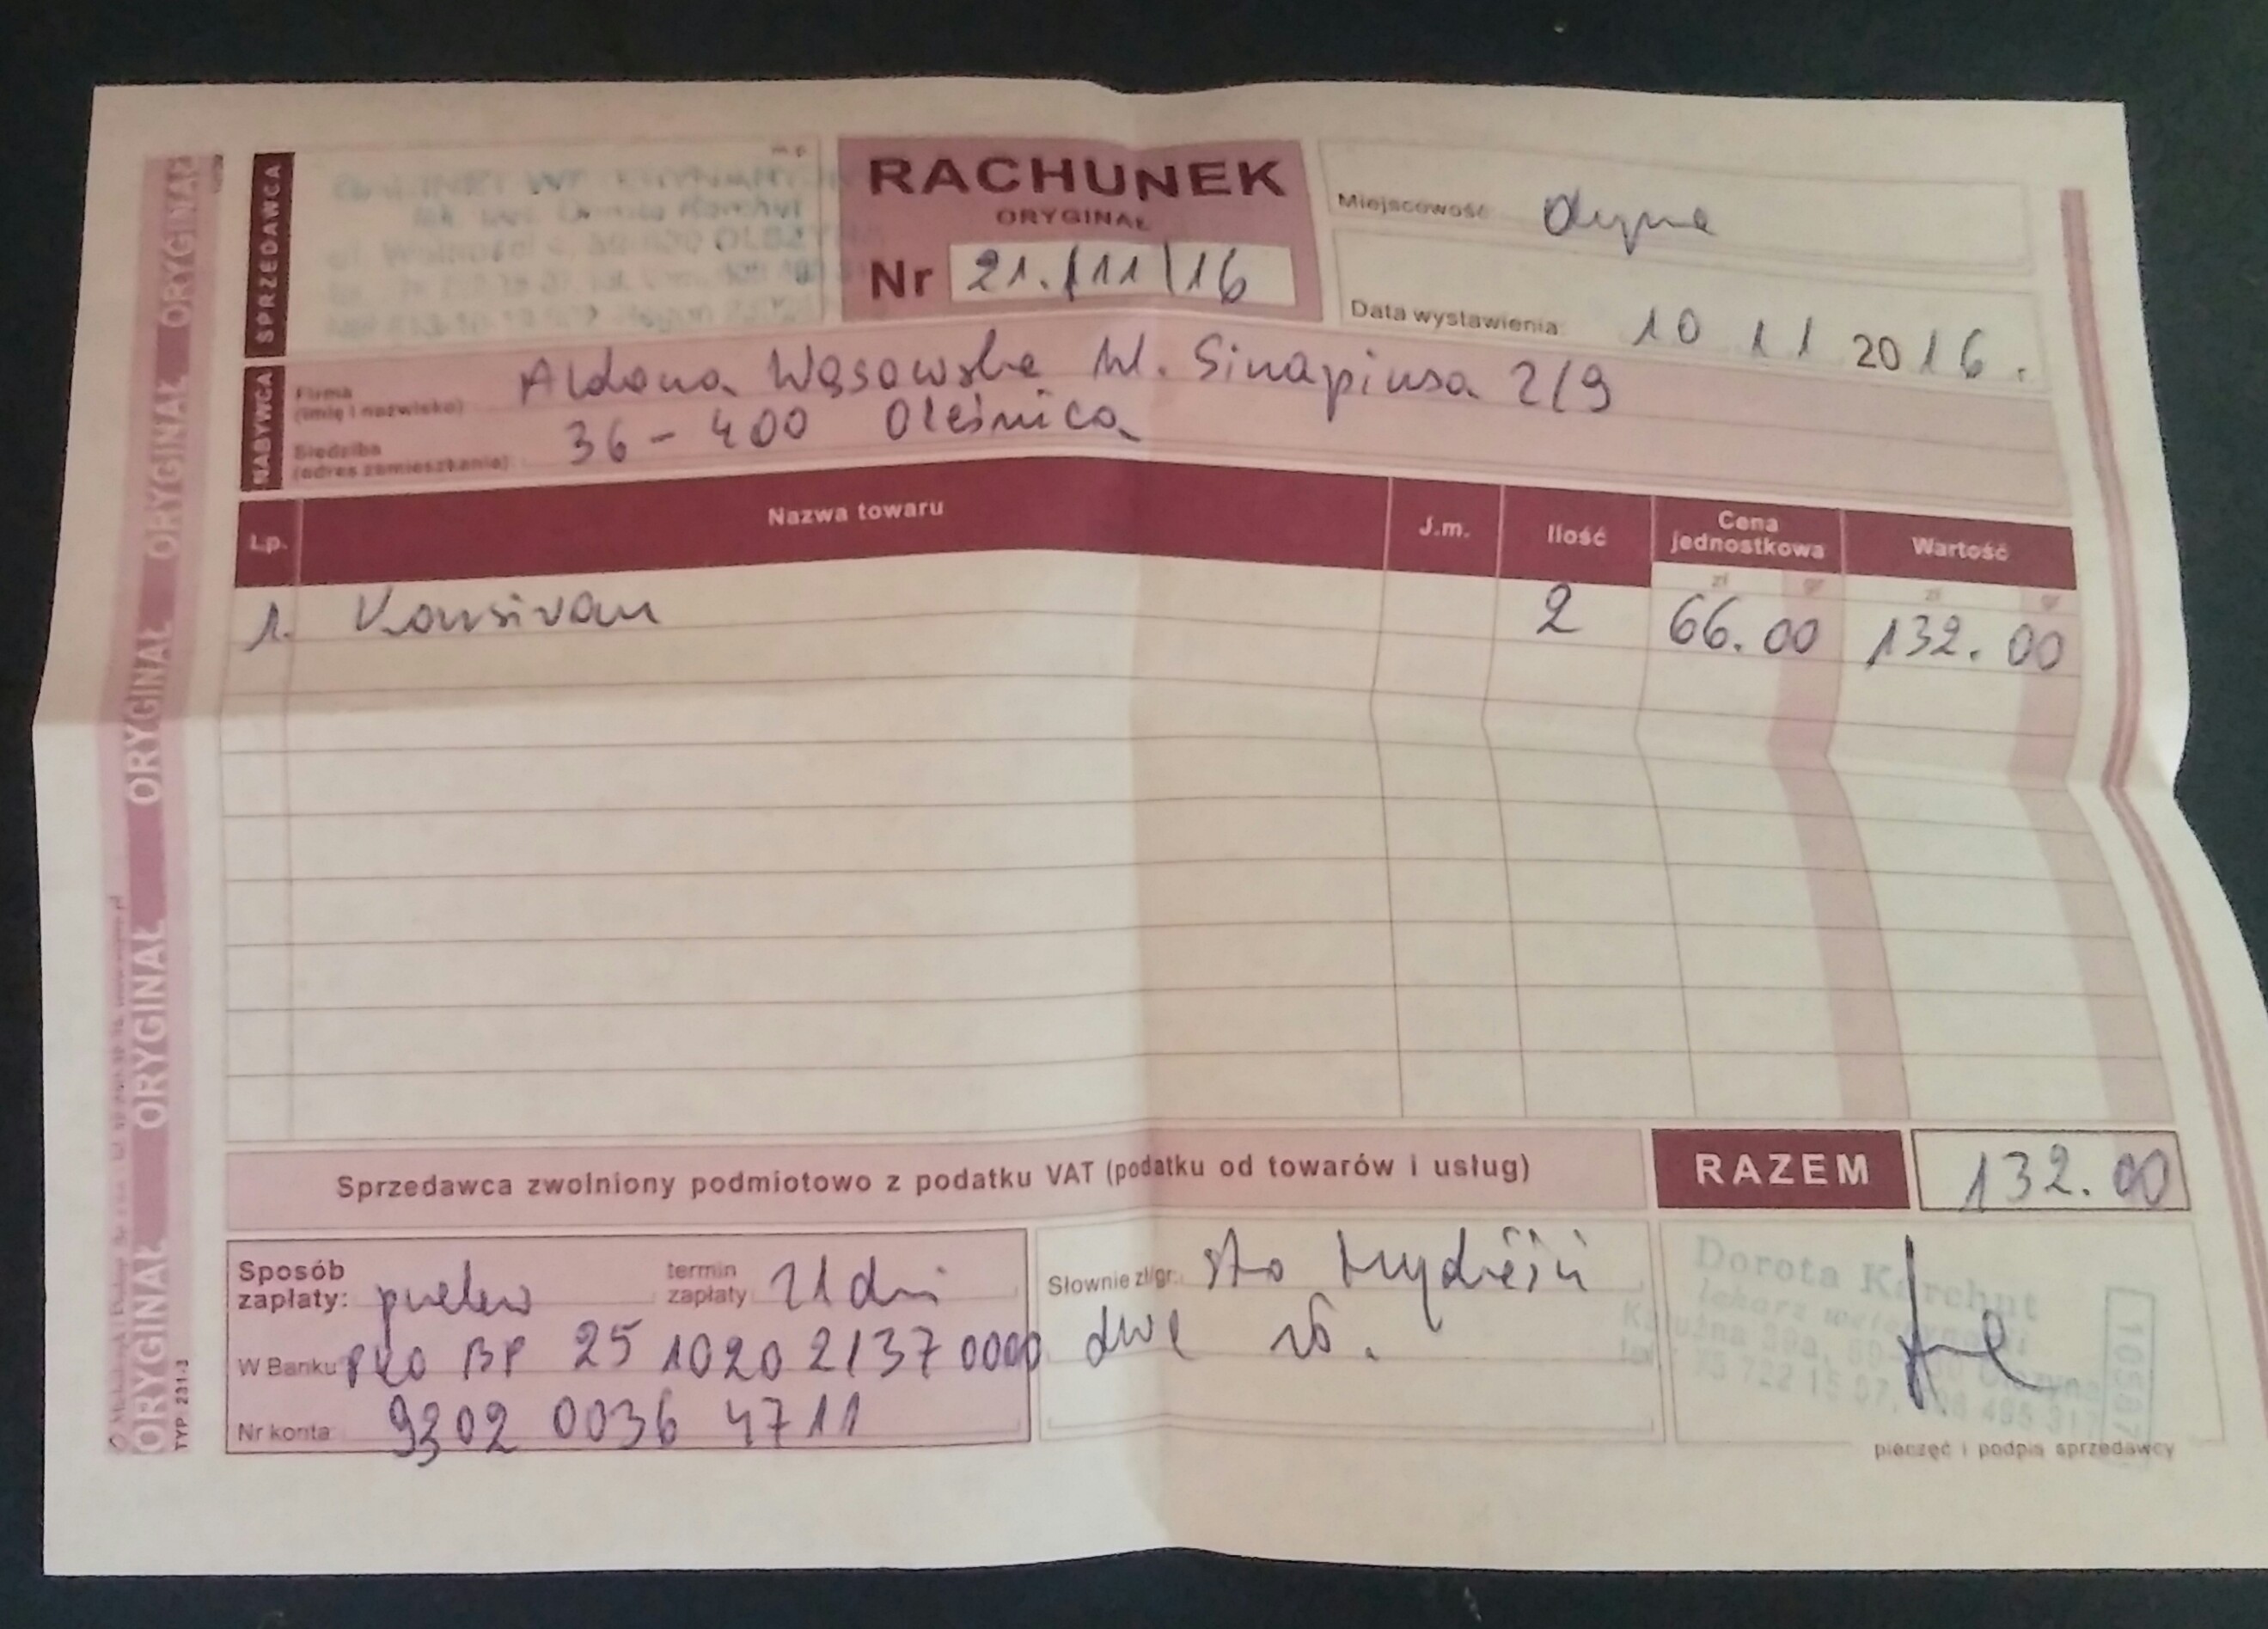 SPRZEDAWCA
lek. wet. Dorota Karchut
ul. Wolności OLSZYNA
RACHUNEK
ORYGINAŁ
Nr 21./11/16
Miejscowość: Olszyna
Data wystawienia: 10 11 2016.
NABYWCA
Firma
(imię i nazwisko)
Aldona Wąsowska ul. Sinapiusa 2/9
Siedziba
(adres zamieszkania)
36-400 Oleśnica
Lp. Nazwa towaru J.m. Ilość Cena jednostkowa Wartość
zł gr zł gr
1. 2 66.00 132.00
Sprzedawca zwolniony podmiotowo z podatku VAT (podatku od towarów i usług)
RAZEM 132.00
Sposób zapłaty: przelew termin zapłaty 21 dni
W Banku PKO BP 25 1020 2137 0000
Nr konta 9302 0036 4711
Słownie zł/gr: sto trzydzieści
dwa zł.
Dorota Karchut
lekarz weterynarii
Olszyna
16587
pieczęć i podpis sprzedawcy
ORYGINAŁ ORYGINAŁ ORYGINAŁ ORYGINAŁ ORYGINAŁ ORYGINAŁ
TYP: 231-3